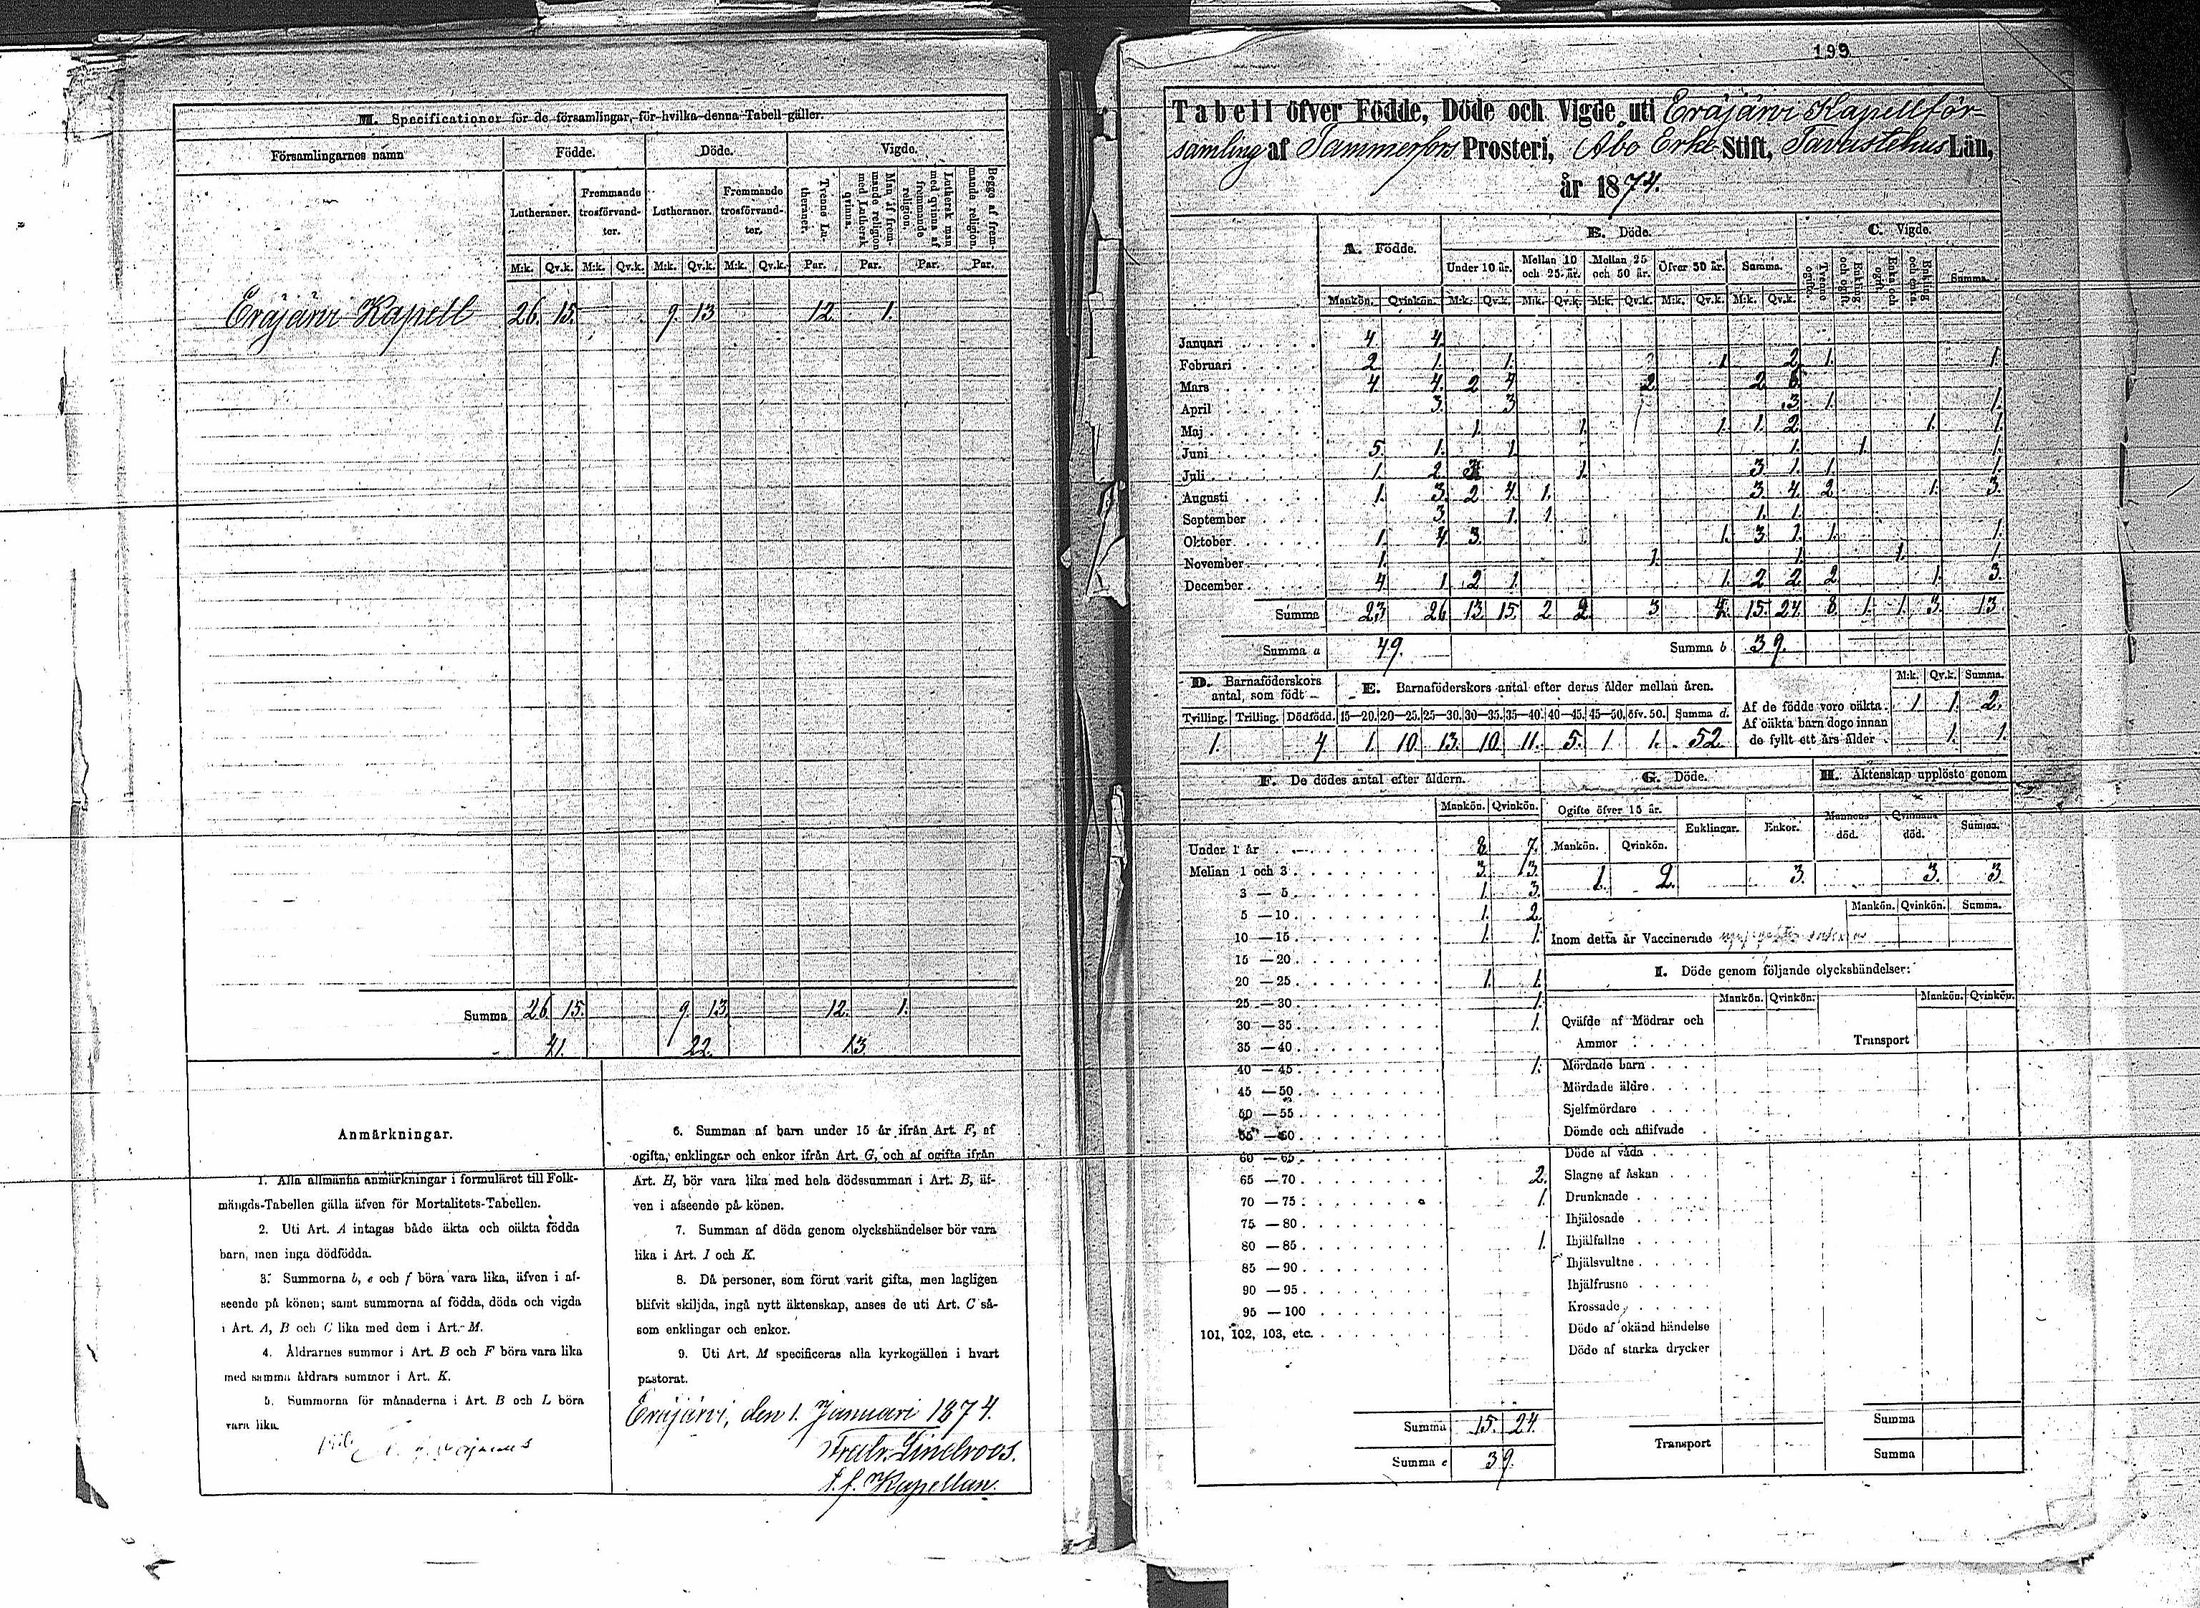 M. Specificationer för de församlingar, för hvilka denna Tabell gäller.
Församlingarnes namn Födde. Döde. Vigde.
Lutheraner. Fremmande trosförvandter. Lutheraner. Fremmande trosförvandter. Tvenne Lutheraner. Man af fremmande religion med Luthersk qvinna. Luthersk man med qvinna af fremmande religion. Begge af fremmande religion.
M:k. Qv.k. M:k. Qv.k. M:k. Qv.k. M:k. Qv.k. Par. Par. Par. Par.
Eräjärvi Kapell 26. 15. 9. 13 12 1.
Summa 26. 15. 9. 13. 12. 1.
41. 22. 13
Anmärkningar.
1. Alla allmänna anmärkningar i formuläret till Folk-
mängds-Tabellen gälla äfven för Mortalitets-Tabellen.
2. Uti Art. A intagas både äkta och oäkta födda
barn, men inga dödfödda.
3. Summorna b, e och f böra vara lika, äfven i af-
seende på könen; samt summorna af födda, döda och vigda
i Art. A, B och C lika med dem i Art. M.
4. Åldrarnes summor i Art. B och F böra vara lika
med samma åldrars summor i Art. K.
5. Summorna för månaderna i Art. B och L böra
vara lika.
6. Summan af barn under 15 år ifrån Art. F, af
ogifta, enklingar och enkor ifrån Art. G, och af ogifte ifrån
Art. H, bör vara lika med hela dödssumman i Art. B, äf-
ven i afseende på könen.
7. Summan af döda genom olyckshändelser bör vara
lika i Art. I och K.
8. Då personer, som förut varit gifta, men lagligen
blifvit skiljda, ingå nytt äktenskap, anses de uti Art. C så-
som enklingar och enkor.
9. Uti Art. M specificeras alla kyrkogällen i hvart
pastorat.
Eräjärvi, den 1. Januari 1874.
Fredr. Lindroos.
t. f. Kapellan.
199
Tabell öfver Födde, Döde och Vigde uti Eräjärvi Kapellför-
samling af Tammerfors Prosteri, Åbo Erke Stift, Tavastehus Län,
år 1874.
A. Födde. B. Döde. C. Vigde.
Under 10 år. Mellan 10 och 25 år. Mellan 25 och 50 år. Öfver 50 år. Summa. Tvenne ogifte. Enkling och ogift. Enka och ogift. Enkling och enka. Summa.
Mankön. Qvinkön. M:k. Qv.k. M:k. Qv.k. M:k. Qv.k. M:k. Qv.k. M:k. Qv.k.
Januari 4 4.
Februari 2 1. 1. 1. 2. 1. 1.
Mars 4 4. 2 4 2. 2 6.
April 3. 3 3. 1. 1.
Maj 1. 1. 1. 1. 2. 1. 1.
Juni 5. 1. 1 1. 1. 1.
Juli 1. 2 3 1. 3 1. 1. 1.
Augusti 1. 3. 2 4. 1. 3 4. 2 1. 3.
September 3. 1. 1. 1. 1.
Oktober 1. 4 3. 1. 3 1. 1. 1.
November 1. 1. 1. 1. 1.
December 4 1. 2 1. 1. 2 2. 2 1. 3.
Summa 23 26 13 15. 2 2. 3 4. 15. 24. 8 1. 1. 3. 13
Summa a 49. Summa b 39.
D. Barnaföderskors antal, som födt
E. Barnaföderskors antal efter deras ålder mellan åren.
M:k. Qv.k. Summa.
Tvilling. Trilling. Dödfödd. 15—20. 20—25. 25—30. 30—35. 35—40. 40—45. 45—50. öfv. 50. Summa d.
1. 4 1. 10 13. 10 11. 5. 1 1. 52
Af de födde voro oäkta 1 1. 2.
Af oäkta barn dogo innan
de fyllt ett års ålder 1. 1.
F. De dödes antal efter åldern.
Mankön. Qvinkön.
Under 1 år 8 7.
Mellan 1 och 3 3. 3.
3 — 5 1. 3.
5 — 10 1. 2
10 — 15 1. 1.
15 — 20
20 — 25 1. 1.
25 — 30 1.
30 — 35 1.
35 — 40
40 — 45 1.
45 — 50
50 — 55
55 — 60
60 — 65
65 — 70 2.
70 — 75 1.
75 — 80
80 — 85 1.
85 — 90
90 — 95
95 — 100
101, 102, 103, etc.
Summa 15. 24.
Summa e 39.
G. Döde.
Ogifte öfver 15 år. Enklingar. Enkor.
Mankön. Qvinkön.
1. 2. 3.
H. Äktenskap upplöste genom
Mannens död. Qvinnans död. Summa.
3. 3.
Mankön. Qvinkön. Summa.
Inom detta år Vaccinerade
I. Döde genom följande olyckshändelser:
Mankön. Qvinkön. Mankön. Qvinkön.
Qväfde af Mödrar och
Ammor
Transport
Mördade barn
Mördade äldre
Sjelfmördare
Dömde och aflifvade
Döde af våda
Slagne af åskan
Drunknade
Ihjälosade
Ihjälfallne
Ihjälsvultne
Ihjälfrusne
Krossade
Döde af okänd händelse
Döde af starka drycker
Summa
Transport
Summa